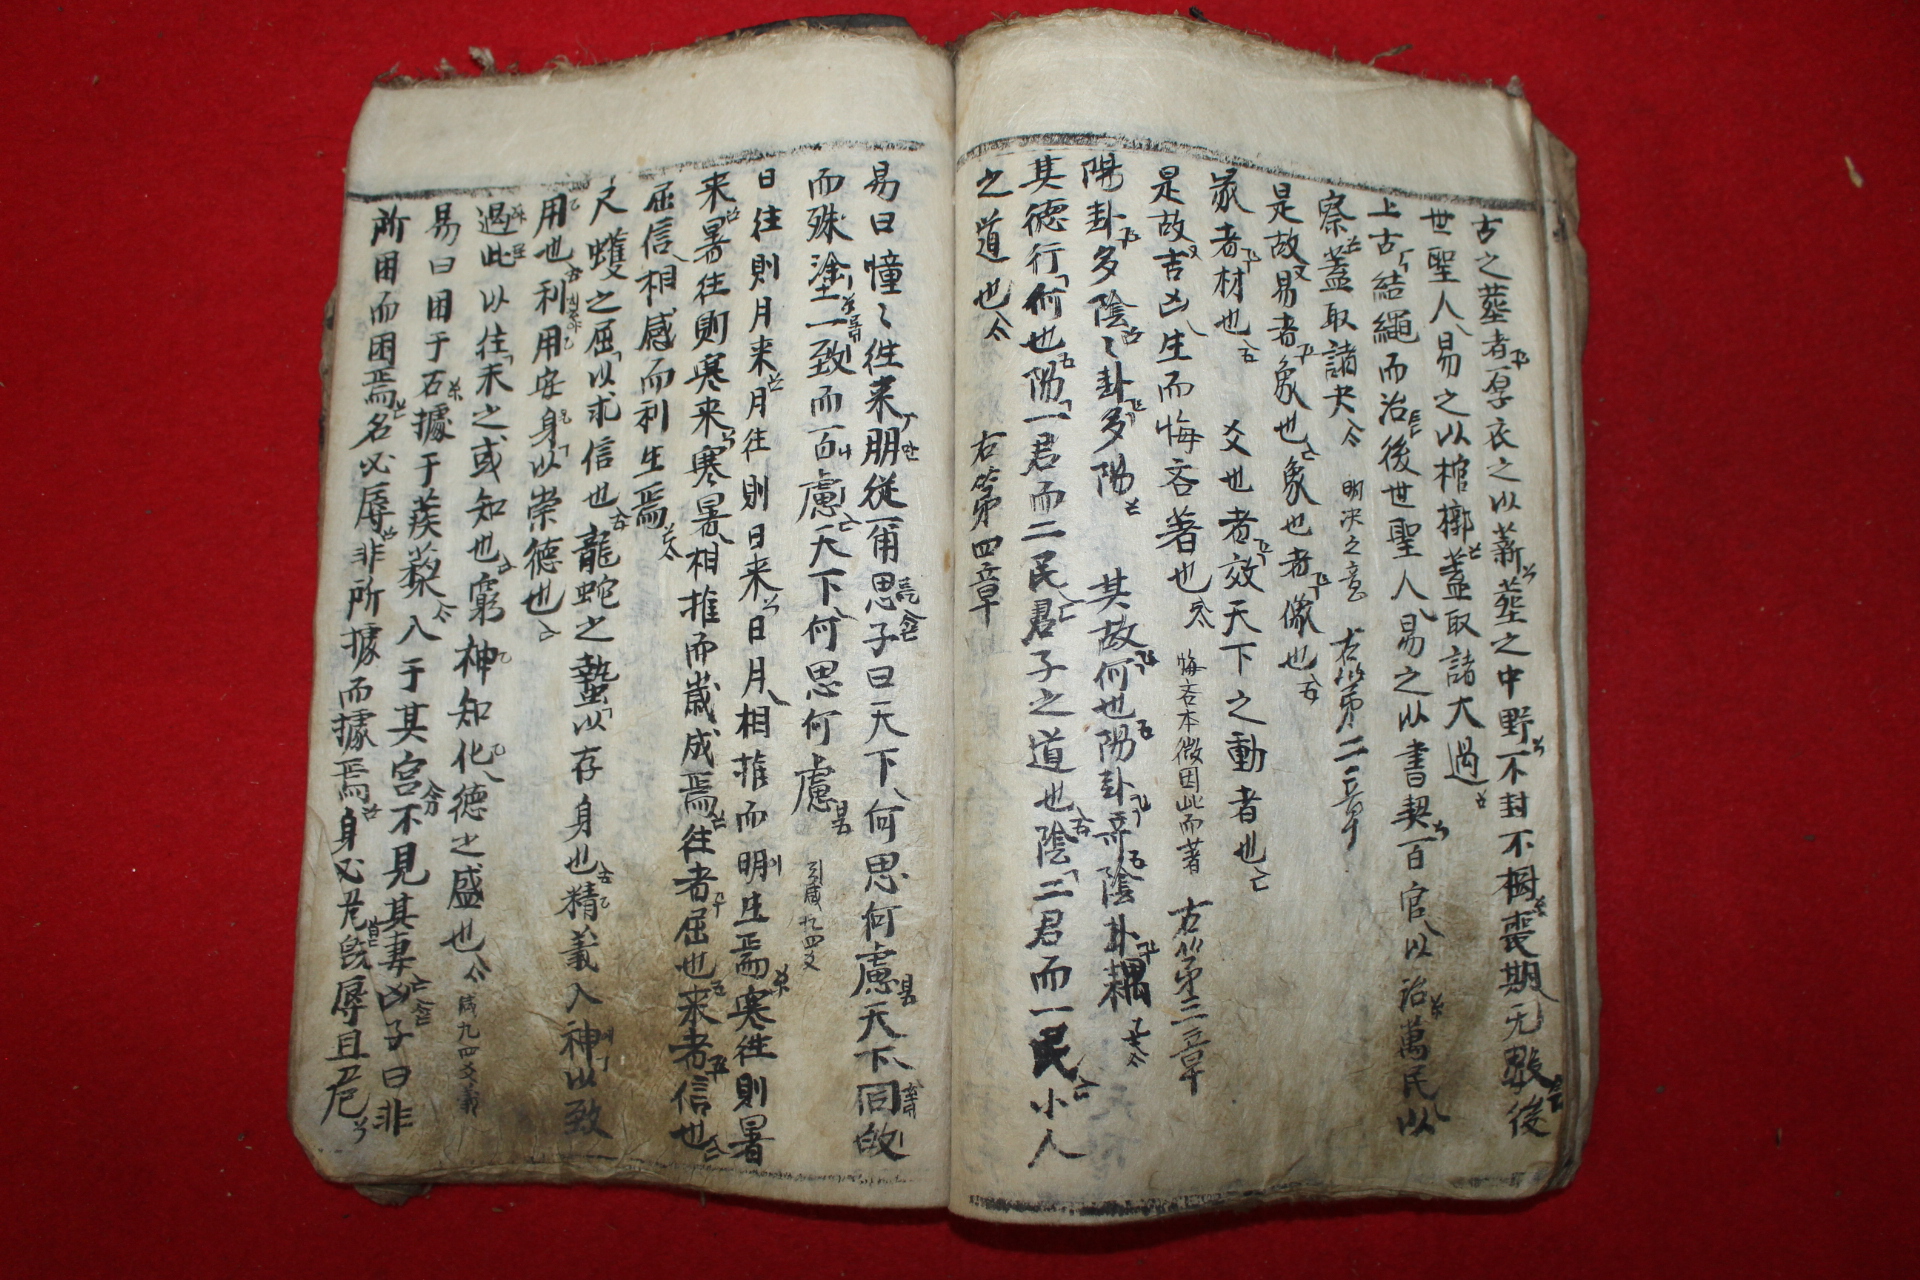 古之葬者厚衣之以薪葬之中野不封不樹喪期无數後
世聖人易之以棺槨蓋取諸大過
上古結繩而治後世聖人易之以書契百官以治萬民以
察蓋取諸夬 明决之意 右第二章
是故易者象也象也者像也
彖者材也 爻也者效天下之動者也
是故吉凶生而悔吝著也 悔吝本微因此而著 右第三章
陽卦多陰陰卦多陽 其故何也陽卦奇陰卦耦
其德行何也陽一君而二民君子之道也陰二君而一民小人
之道也 右第四章
易曰憧〻往来朋從爾思子曰天下何思何慮天下同故
而殊塗一致而百慮天下何思何慮 引咸九四爻
日往則月来月往則日来日月相推而明生焉寒往則暑
来暑往則寒来寒暑相推而歲成焉往者屈也来者信也
屈信相感而利生焉
尺蠖之屈以求信也龍蛇之蟄以存身也精義入神以致
用也利用安身以崇德也
過此以往未之或知也窮神知化德之盛也 咸九四爻義
易曰困于石據于蒺藜入于其宮不見其妻凶子曰非
所困而困焉名必辱非所據而據焉身必危旣辱且危